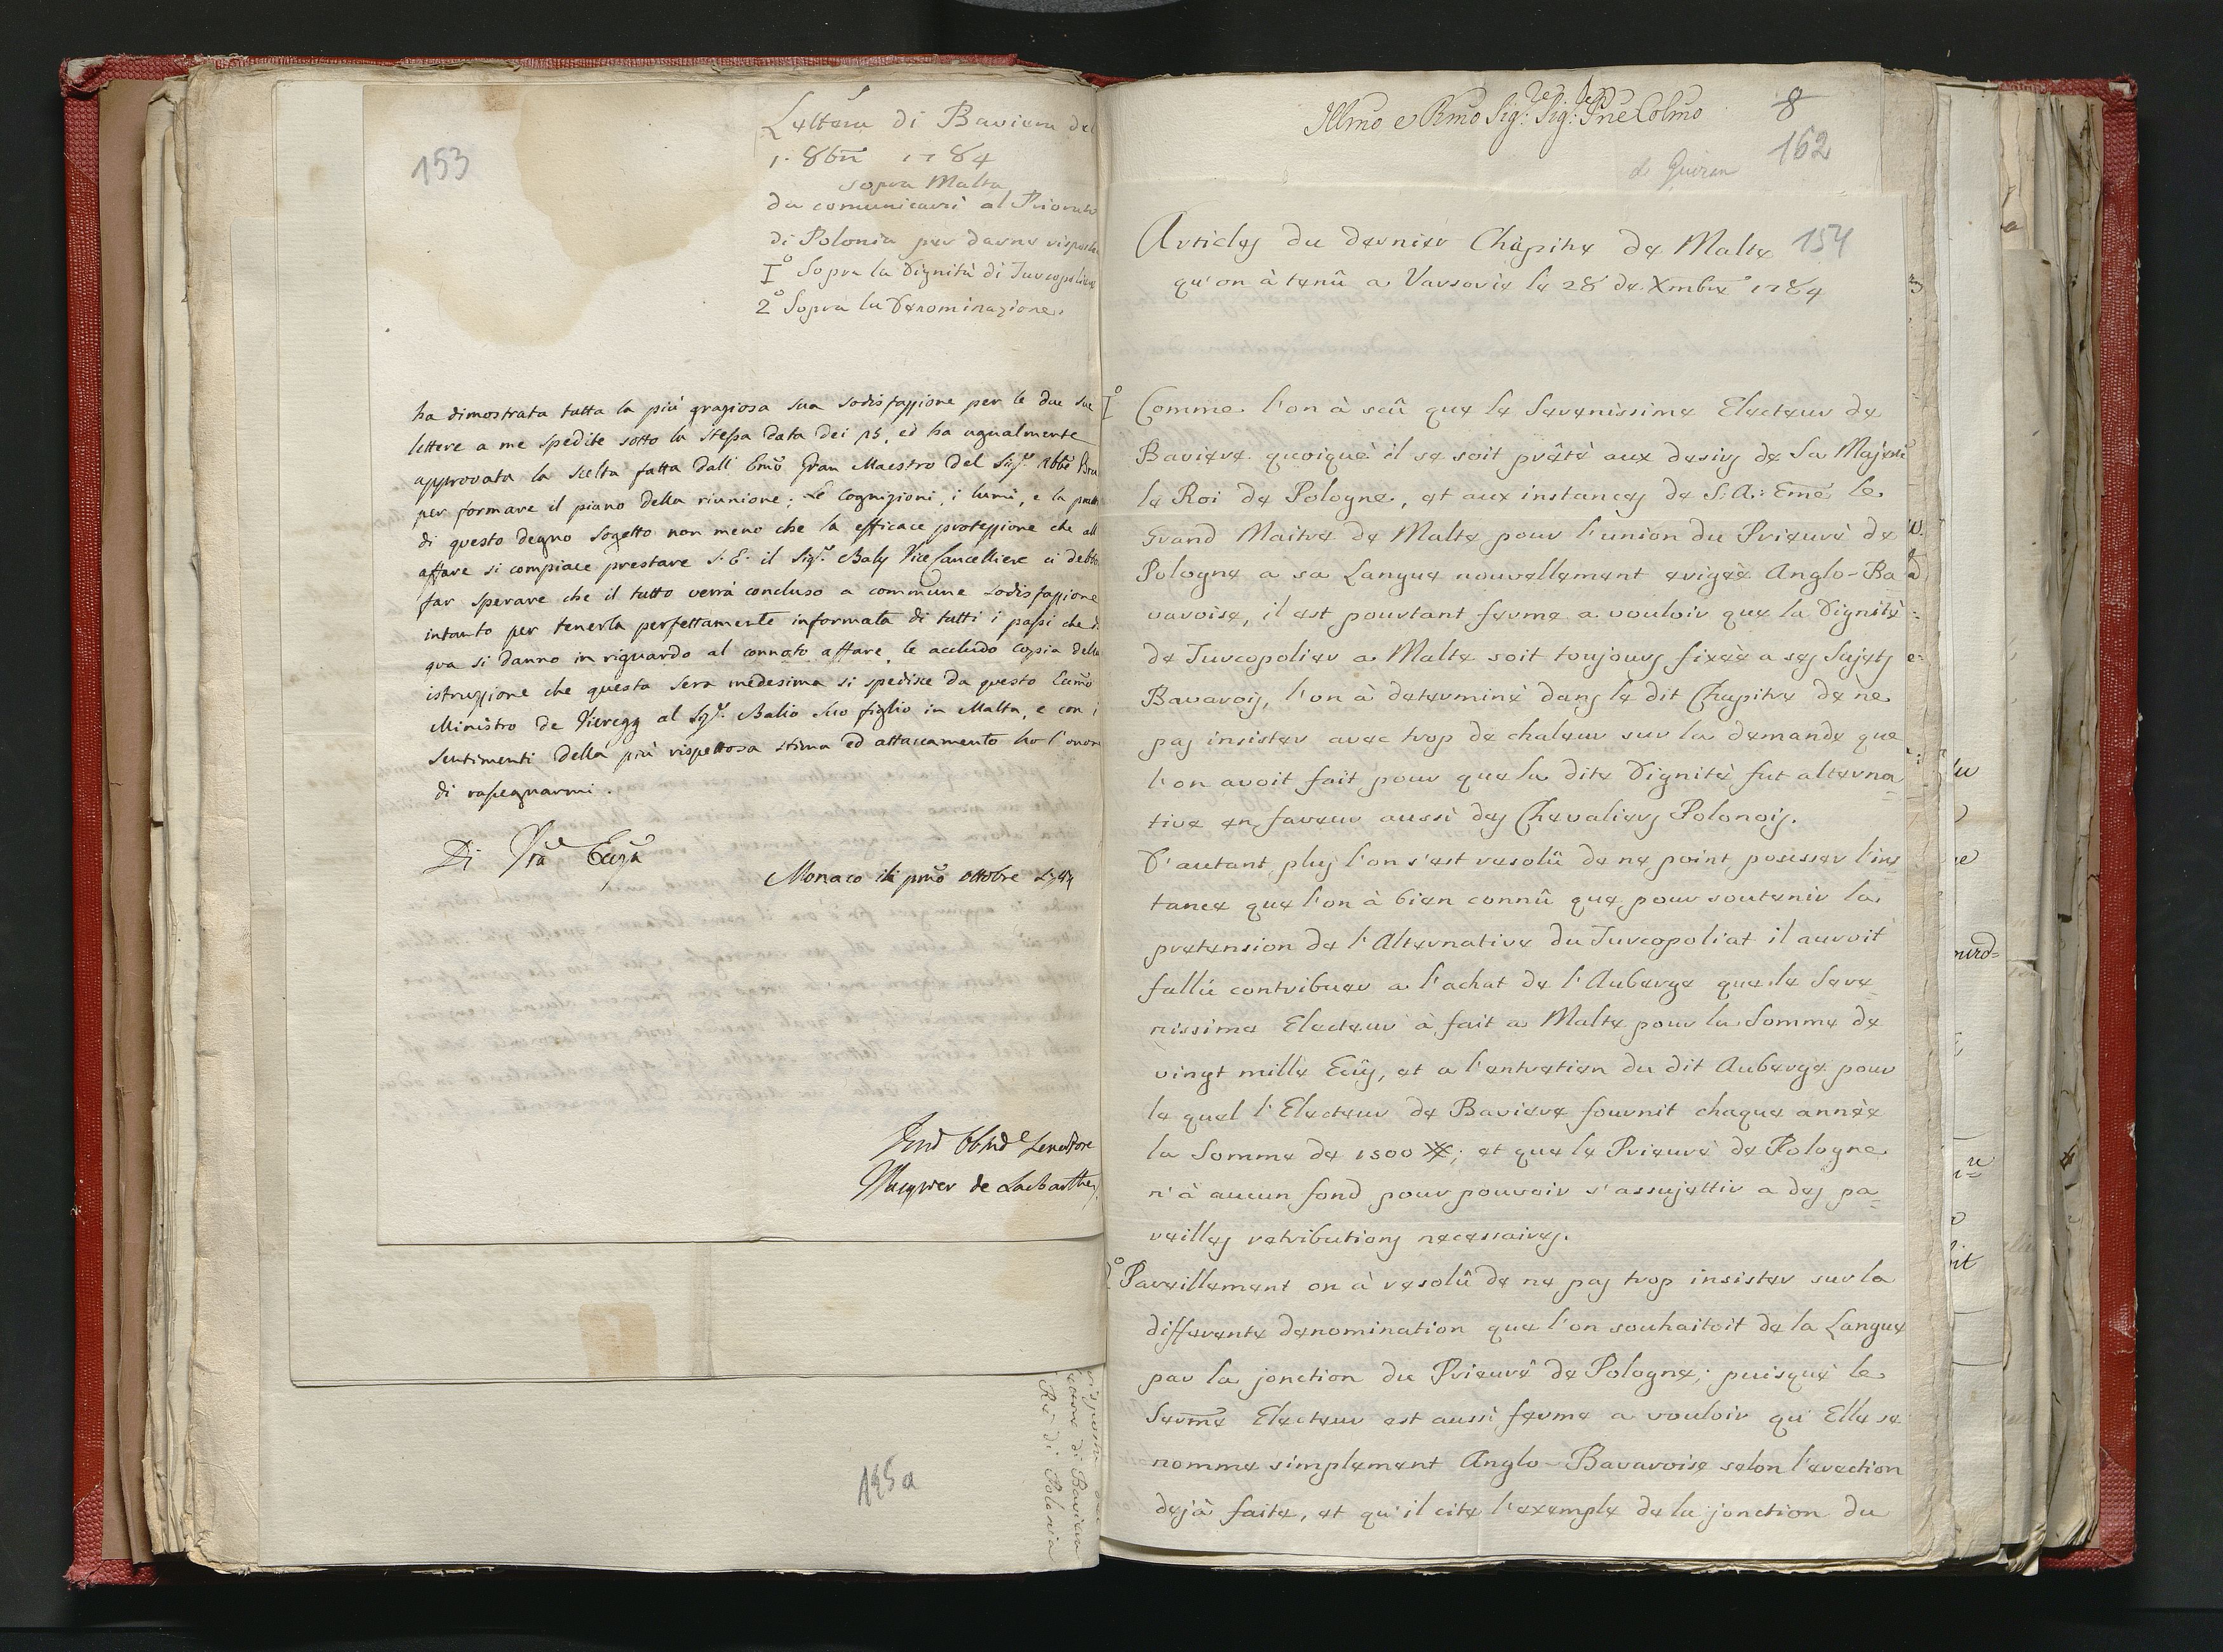 153
Lettera di Baviera del
1. 8bre 1784
sopra Malta
da comunicarsi al Priorato
di Polonia per darne risposta
I° Sopra la Dignità di Turcopoliere
2° Sopra la Denominazione.
ha dimostrata tutta la più graziosa sua sodisfazzione per le due sue
lettere a me spedite sotto la stessa data dei 15, ed ha ugualmente
approvata la scelta fatta dall' Emo Gran Maestro del Sigr. Abbe
per formare il piano della riunione; Le Cognizioni, i lumi, e la
di questo degno sogetto non meno che la efficace protezzione che all
affare si compiace prestare S. E. il Sigr. Baly Vice Cancelliere ci debbo
far sperare che il tutto verrà concluso a commune sodisfazzione
intanto per tenerla perfettamente informata di tutti i passi che d.
qua si danno in riguardo al connoto affare, le accludo copia della
istruzzione che questa sera medesima si spedisce da questo Ecmo
Ministro de Vieregg al Sigr. Balio suo figlio in Malta, e con i
sentimenti della più rispettosa stima ed attaccamento ho l'onore
di rassegnarmi.
Di Vra Ecczã
Monaco il pmo ottobre 1784
Servitore
de Lasbarthes
195a
di Baviera
Rè di Polonia
Illmo e Rmo Sig: Sig: Pne Colmo
8
162
Articles du dernier Chàpitre de Malte
154
qu'on à tenû a Varsovie le 28 de Xmbre 1784
I° Comme l'on à scû que le Serenissime Electeur de
Baviere quoiquè il se soit prêtè aux desirs de Sa Majestè
le Roi de Pologne, et aux instances de S: A: Eme le
Grand Maitre de Malte pour l'union du Prieurè de
Pologne a sa Langue nouvellement erigèe Anglo-Ba
varoise, il est pourtant ferme a vouloir que la Dignitè
de Turcopolier a Malte soit toujours fixèe a ses Sujets
Bavarois, l'on à determinè dans le dit Chapitre de ne
pas insister avec trop de chaleur sur la demande que
l'on avoit fait pour que la dite Dignitè fut alterna=
tive en faveur aussi des Chevaliers Polonois.
D'autant plus l'on s'est resolû de ne point pousser l'ins=
tance que l'on à bien connû que pour soutenir la
pretension de l'Alternative du Turcopoliat il auroit
fallú contribuer a l'achat de l'Auberge que le Sere=
nissime Electeur à fait a Malte pour la Somme de
vingt mille Ecûs, et a l'entretien du dit Auberge pour
le quel l'Electeur de Baviere fournit chaque annèe
la Somme de 1500 ; et que le Prieurè de Pologne
n'à aucun fond pour pouvoir s'assujettir a des pa=
reilles retributions necessaires.
2° Pareillement on à resolû de ne pas trop insister sur la
differente denomination que l'on souhaitoit de la Langue
par la jonction du Prieurè de Pologne; puisquè le
Serme Electeur est aussi ferme a vouloir qu'Elle se
nomme simplement Anglo-Bavaroise selon l'erection
dejà faite, et qu'il cite l'exemple de la jonction du